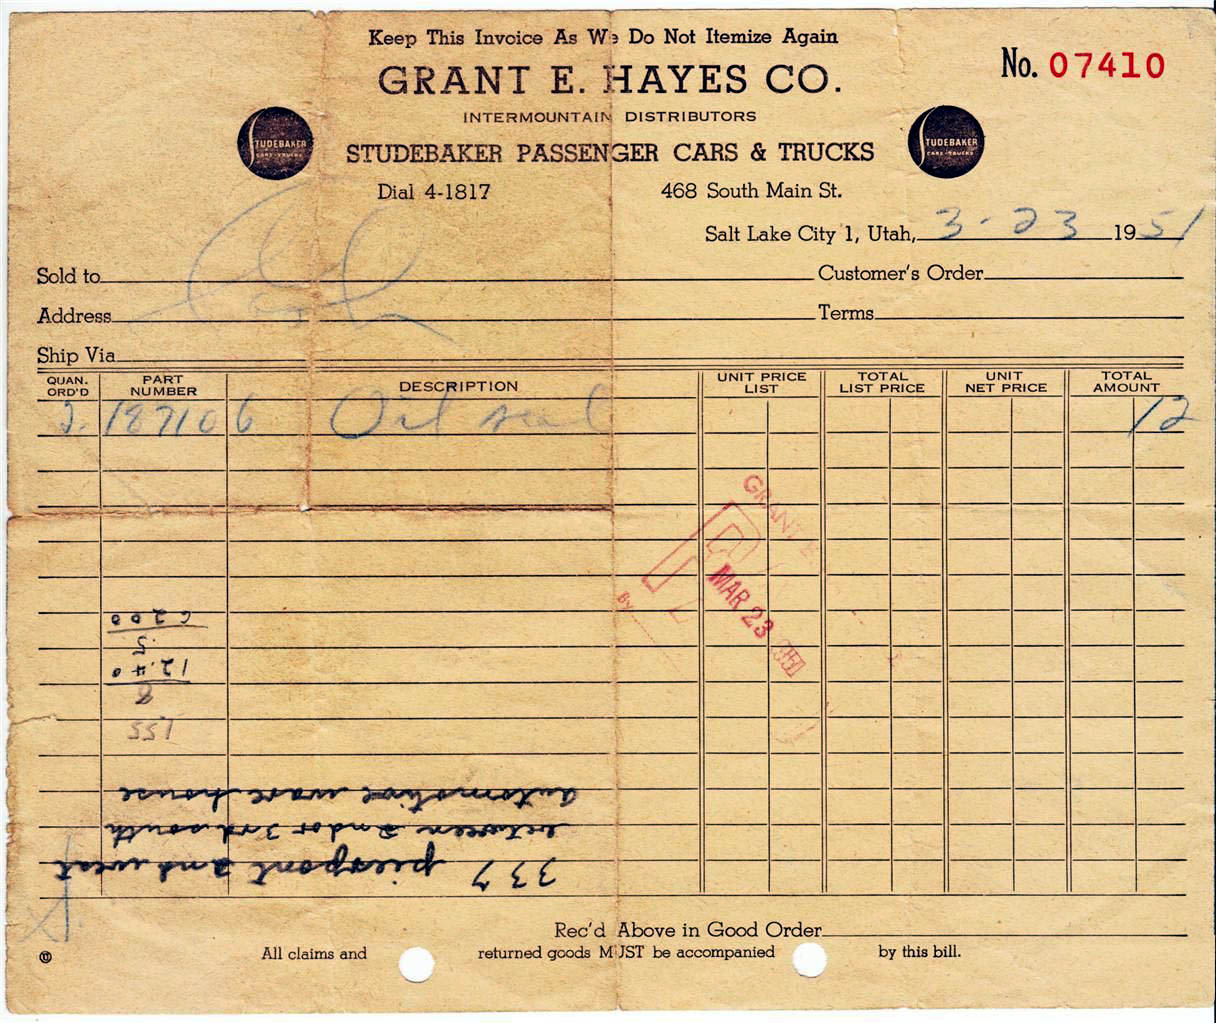 Keep This Invoice As We Do Not Itemize Again
No. 07410
GRANT E. HAYES CO.
INTERMOUNTAIN DISTRIBUTORS
STUDEBAKER CARS-TRUCKS
STUDEBAKER PASSENGER CARS & TRUCKS
STUDEBAKER CARS-TRUCKS
Dial 4-1817 468 South Main St.
Salt Lake City 1, Utah, 3-23 1951
Sold to Customer's Order
Address Terms
Ship Via
QUAN. ORD'D PART NUMBER DESCRIPTION UNIT PRICE LIST TOTAL LIST PRICE UNIT NET PRICE TOTAL AMOUNT
2. 187106 Oil seal 12
GRANT E.
MAR 23 1951
BY
337 pierpont 2nd west
between 2nd or 3rd south
automotive ware house
8
12.40
.5
6200
Rec'd Above in Good Order
All claims and returned goods MUST be accompanied by this bill.